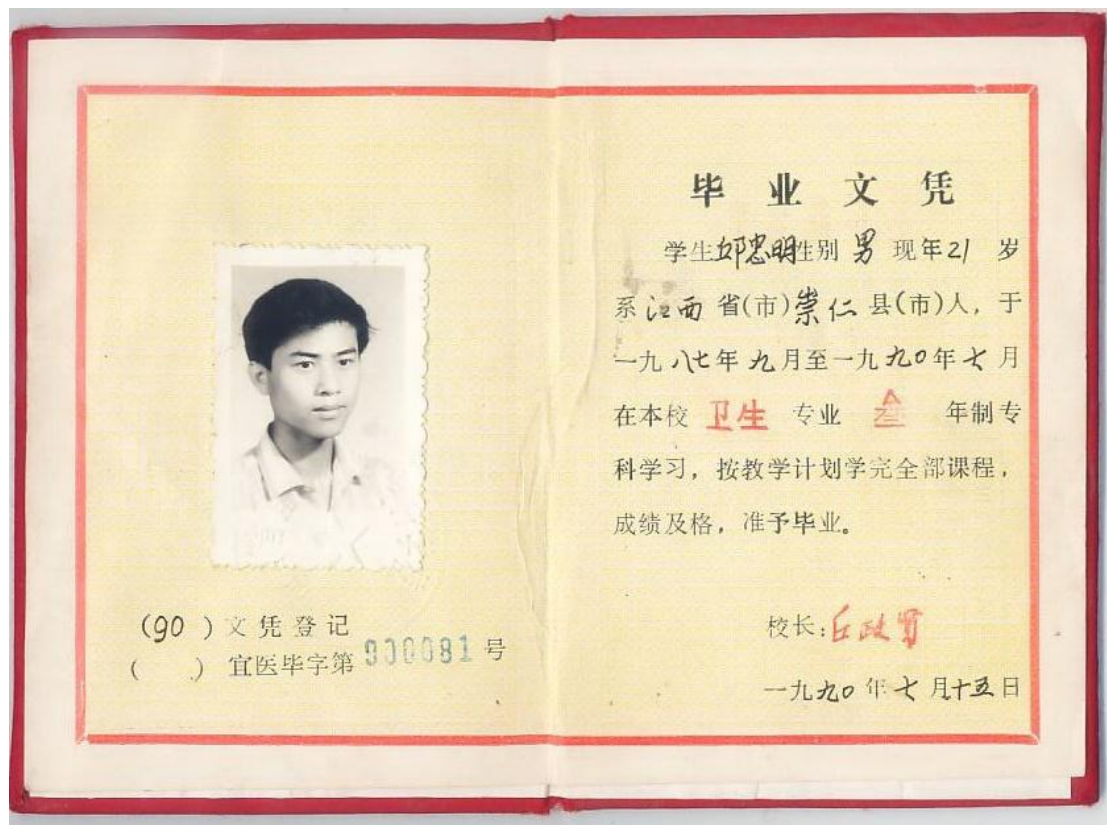 (90)文凭登记
( )宜医毕字第900081号
毕业文凭
学生邱忠明性别 男 现年21 岁
系江西省(市)崇仁县(市)人，于
一九八七年九月至一九九〇年七月
在本校 卫生 专业 叁 年制专
科学习，按教学计划学完全部课程，
成绩及格，准予毕业。
校长:丘政贤
一九九〇年七月十五日